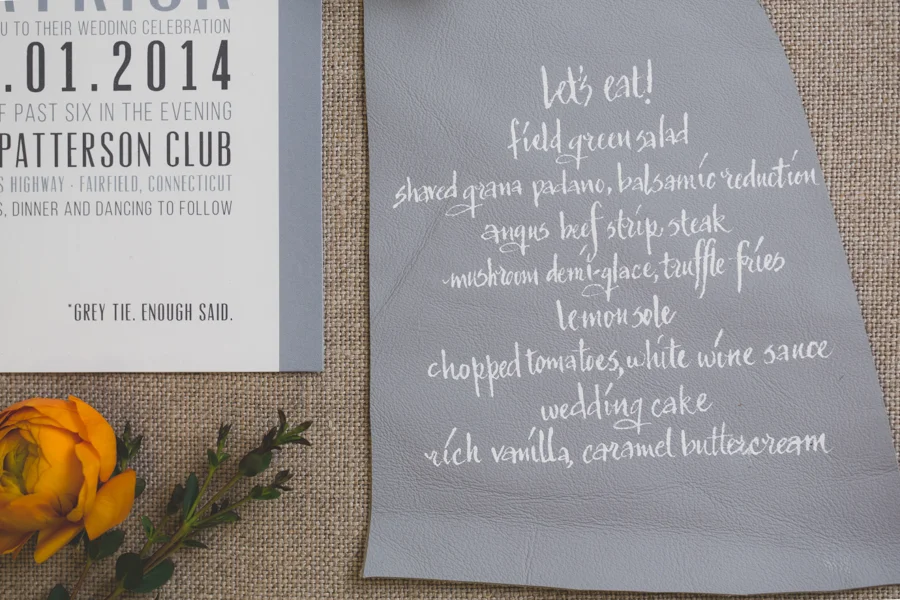 U TO THEIR WEDDING CELEBRATION
.01.2014
F PAST SIX IN THE EVENING
PATTERSON CLUB
S HIGHWAY · FAIRFIELD, CONNECTICUT
S, DINNER AND DANCING TO FOLLOW
*GREY TIE. ENOUGH SAID.
let's eat!
field green salad
shaved grana padano, balsamic reduction
angus beef strip steak
mushroom demi-glace, truffle fries
lemon sole
chopped tomatoes, white wine sauce
wedding cake
rich vanilla, caramel buttercream